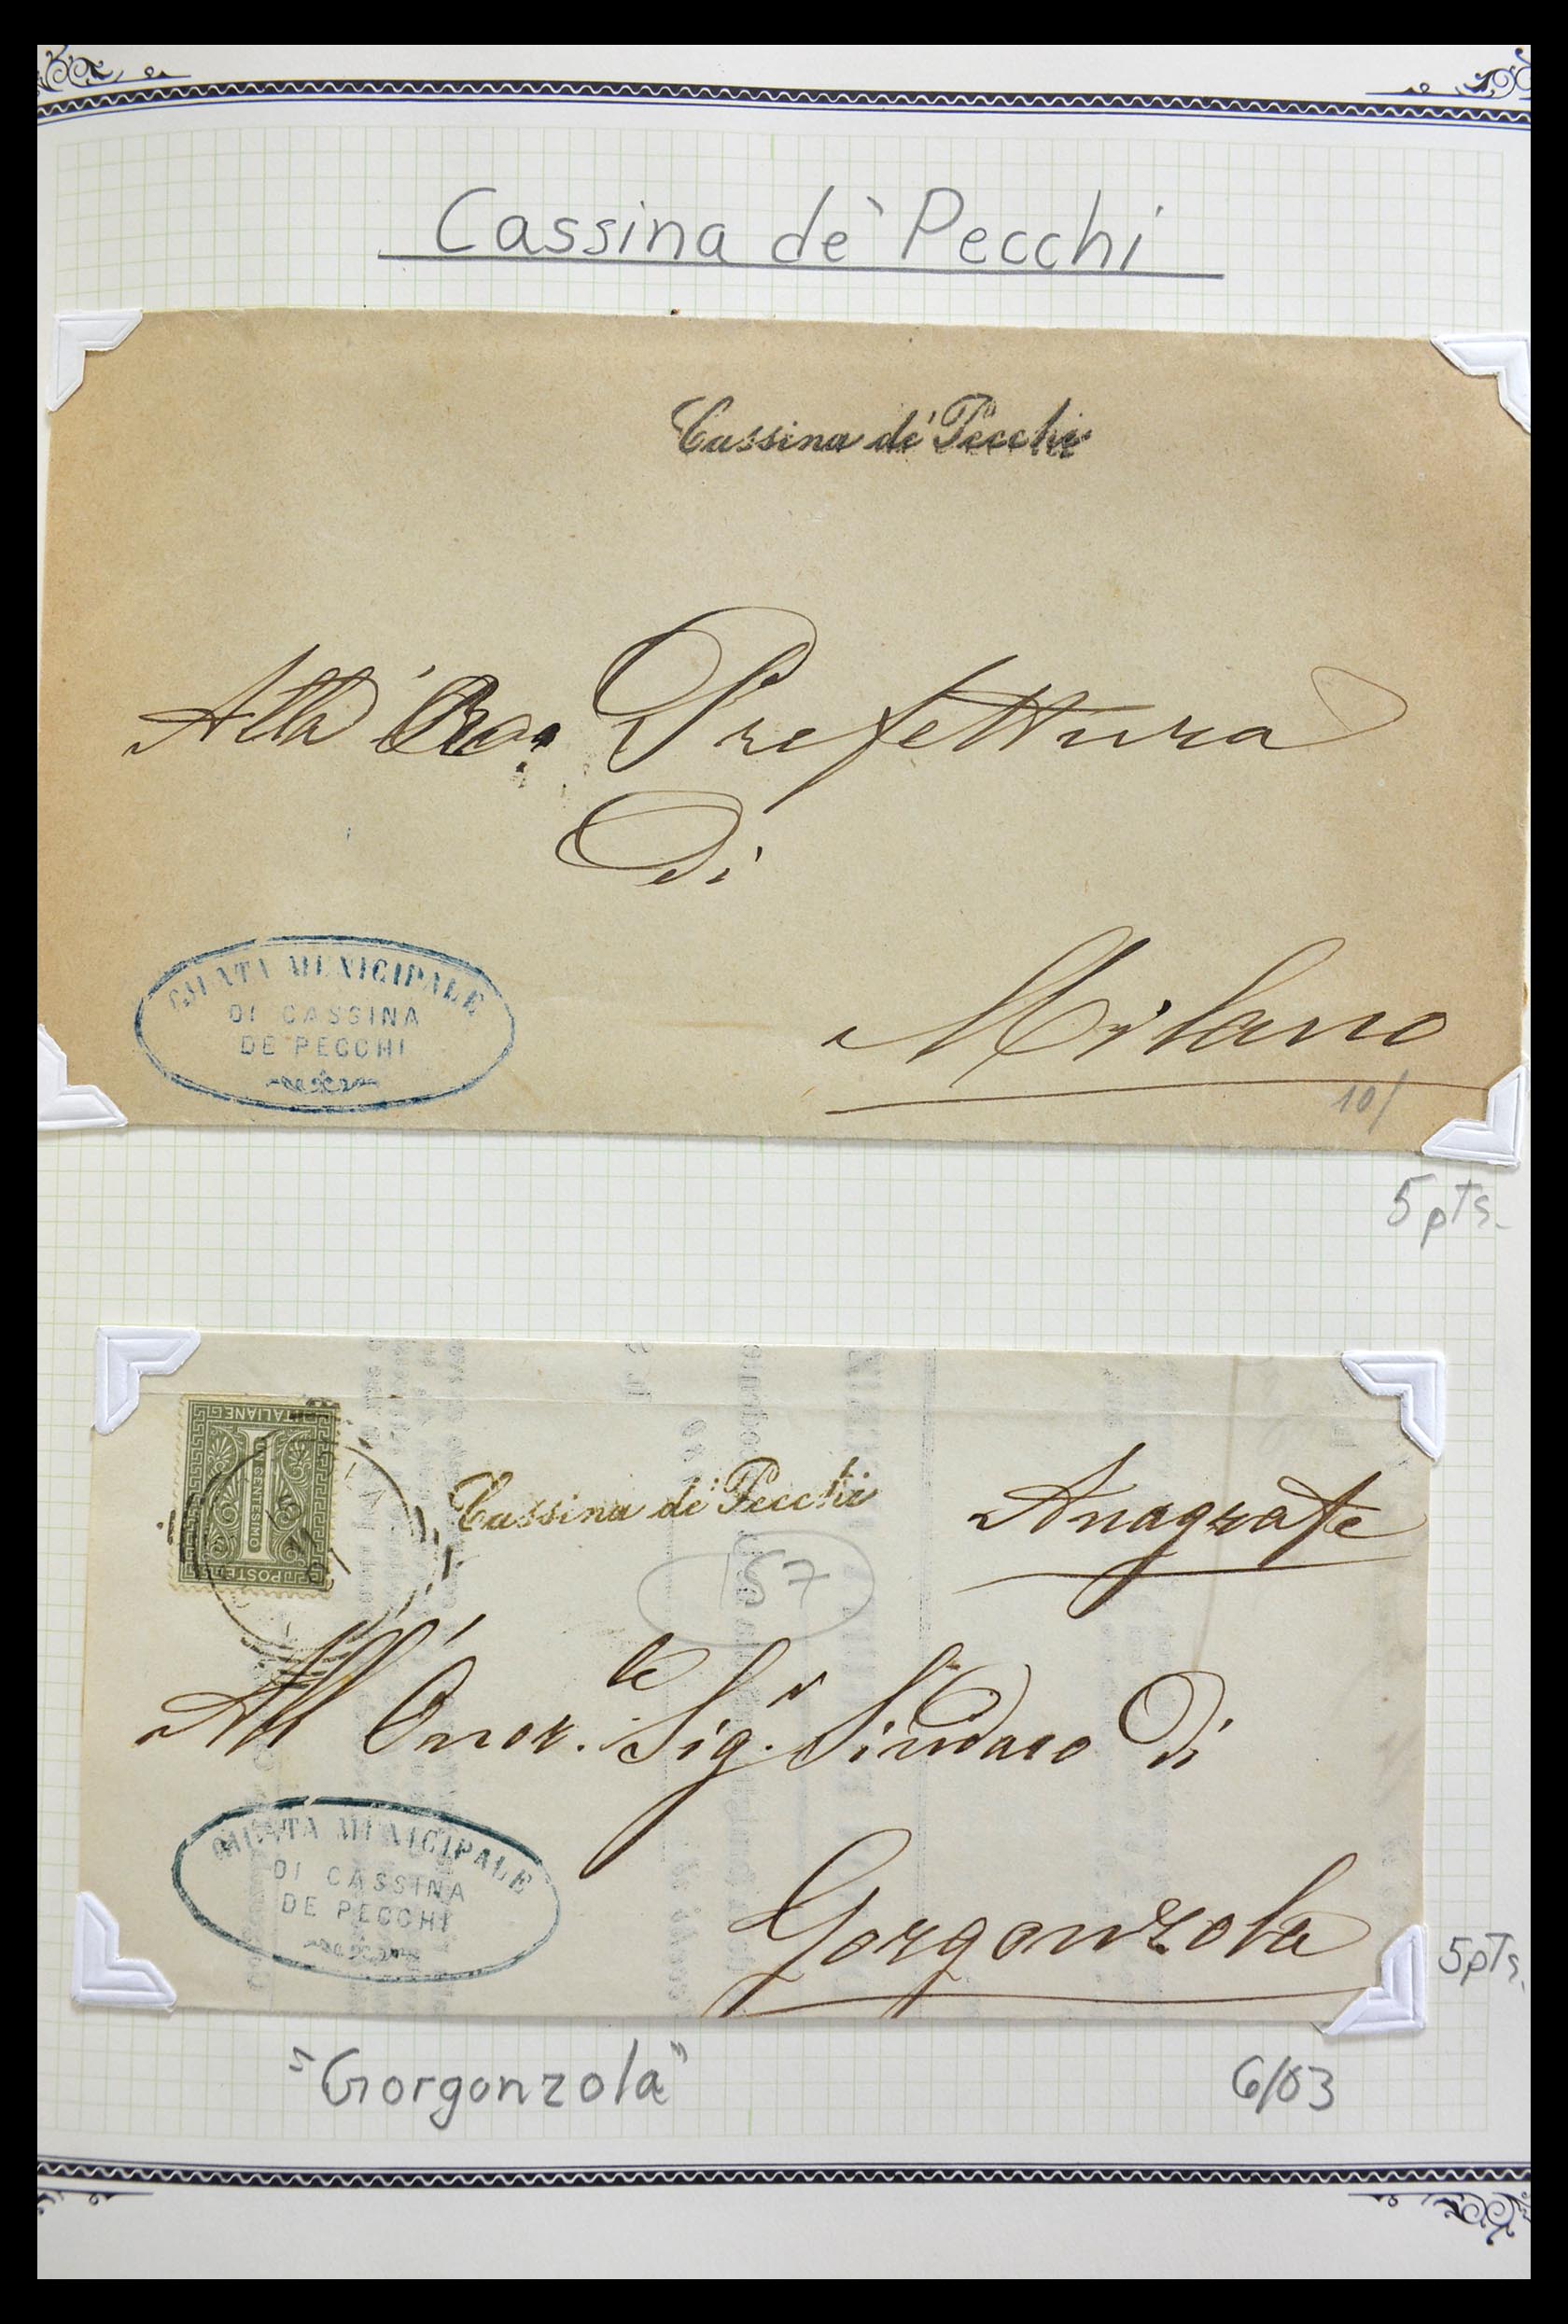 Cassina dè Pecchi
Cassina de' Pecchi
Alla Ra. Prefettura
Di
Milano
GIUNTA MUNICIPALE
DI CASSINA
DE PECCHI
10/
5 pts.
POSTE ITALIANE
UN CENTESIMO
1
Cassina de' Pecchi
Anagrafe
157
All' Onor.le Sig.r Sindaco Di
Gorgonzola
GIUNTA MUNICIPALE
DI CASSINA
DE PECCHI
5pts.
"Gorgonzola"
6/03